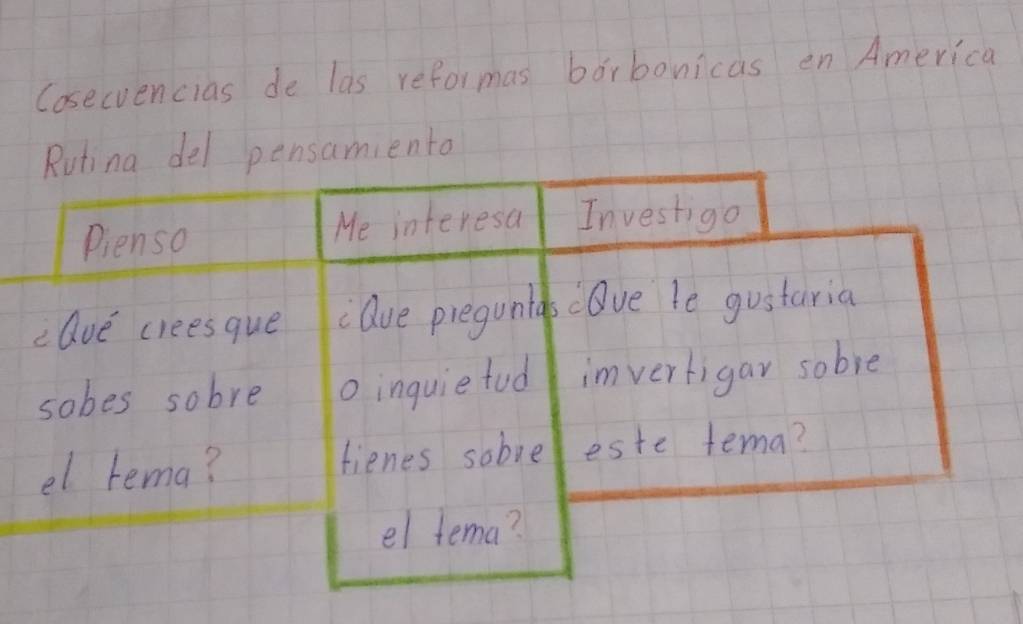 Cosecuencias de las reformas bórbonicas en América
Rutina del pensamiento
Pienso
¿Qué crees que
sobes sobre
el tema?
Me interesa
¿Que preguntas
o inquietud
tienes sobre
el tema?
Investigo
¿Que le gustaria
imvertigar sobre
este tema?